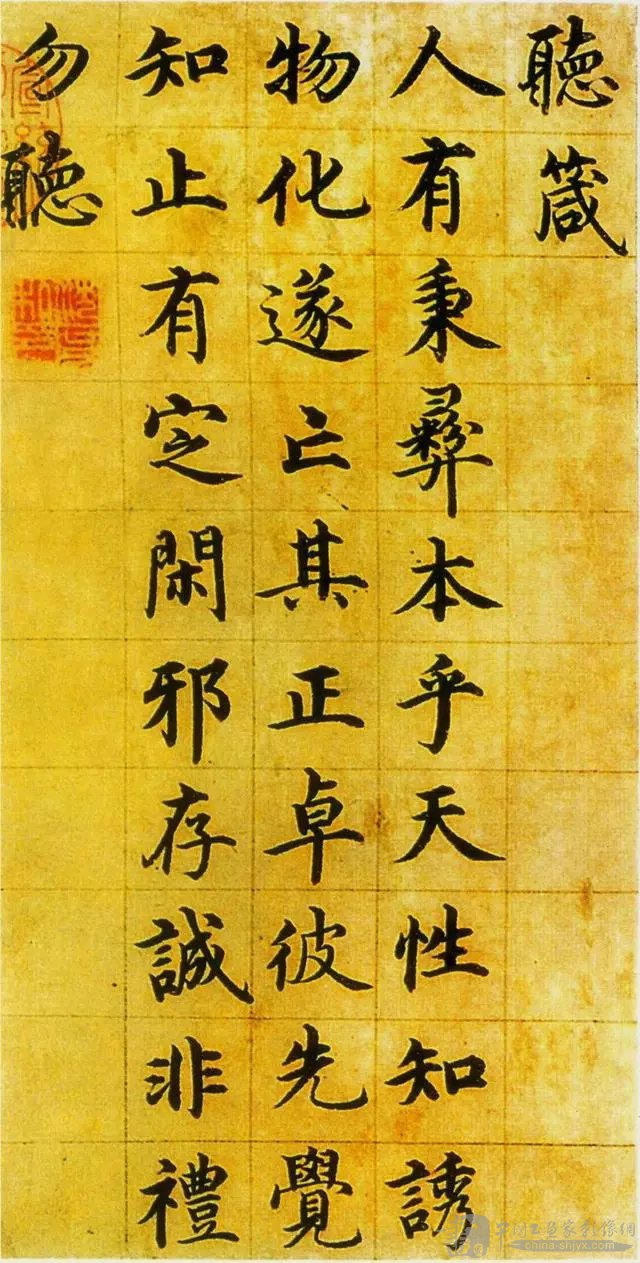 聽箴
人有秉彝本乎天性知誘
物化遂亡其正卓彼先覺
知止有定閑邪存誠非禮
勿聽
china-shjyx.com